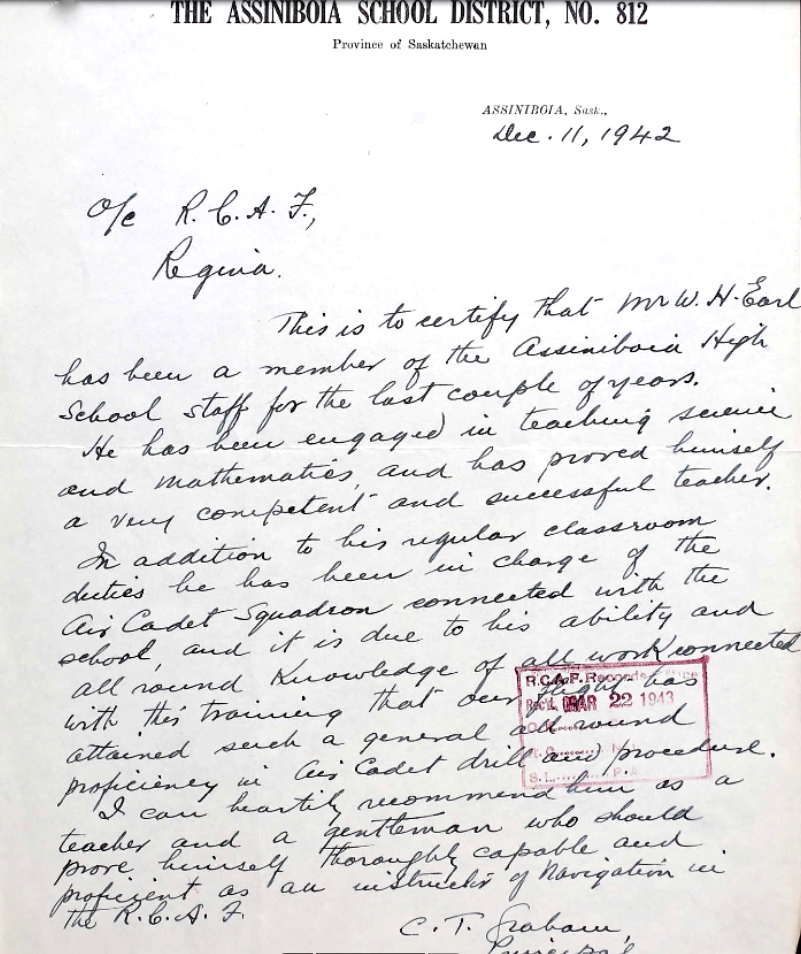 THE ASSINIBOIA SCHOOL DISTRICT, NO. 812
Province of Saskatchewan
ASSINIBOIA, Sask.,
Dec. 11, 1942
O/c R.C.A.F.,
Regina.
This is to certify that Mr W. H. Earl
has been a member of the Assiniboia High
School staff for the last couple of years.
He has been engaged in teaching science
and mathematics, and has proved himself
a very competent and successful teacher.
In addition to his regular classroom
duties he has been in charge of the
Air Cadet Squadron connected with the
school, and it is due to his ability and
all round knowledge of all work connected
with this training that our flight has
attained such a general all round
proficiency in Air Cadet drill and procedure.
I can heartily recommend him as a
teacher and a gentleman who should
prove himself thoroughly capable and
proficient as an instructor of Navigation in
the R.C.A.F.
C. T. Graham,
Principal
R.C.A.F. Records Office
Rec'd. MAR 22 1943
S.L. P.A